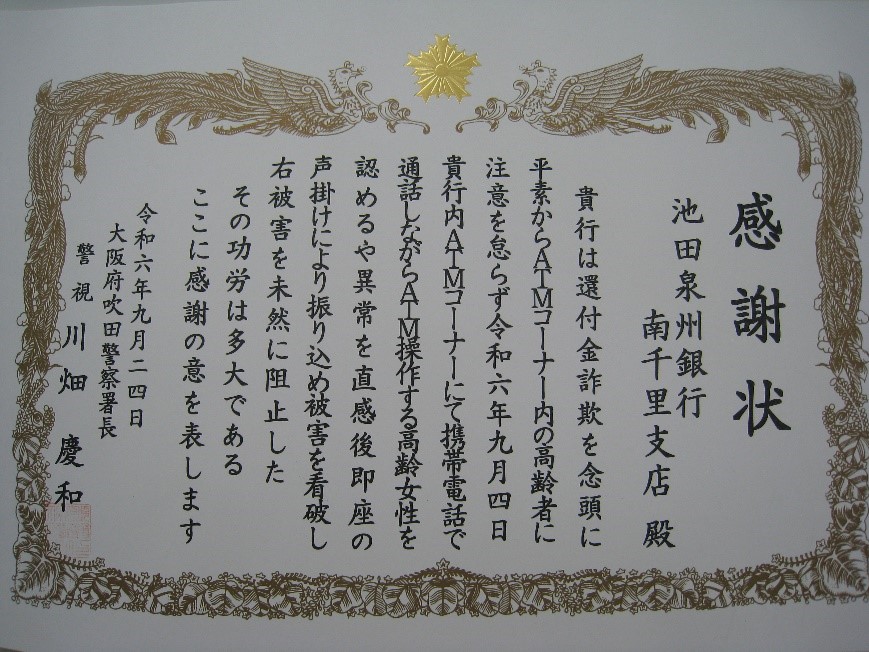 感謝状
池田泉州銀行
南千里支店 殿
貴行は還付金詐欺を念頭に
平素からATMコーナー内の高齢者に
注意を怠らず令和六年九月四日
貴行内ATMコーナーにて携帯電話で
通話しながらATM操作する高齢女性を
認めるや異常を直感後即座の
声掛けにより振り込め被害を看破し
右被害を未然に阻止した
その功労は多大である
ここに感謝の意を表します
令和六年九月二四日
大阪府吹田警察署長
警視 川畑 慶和